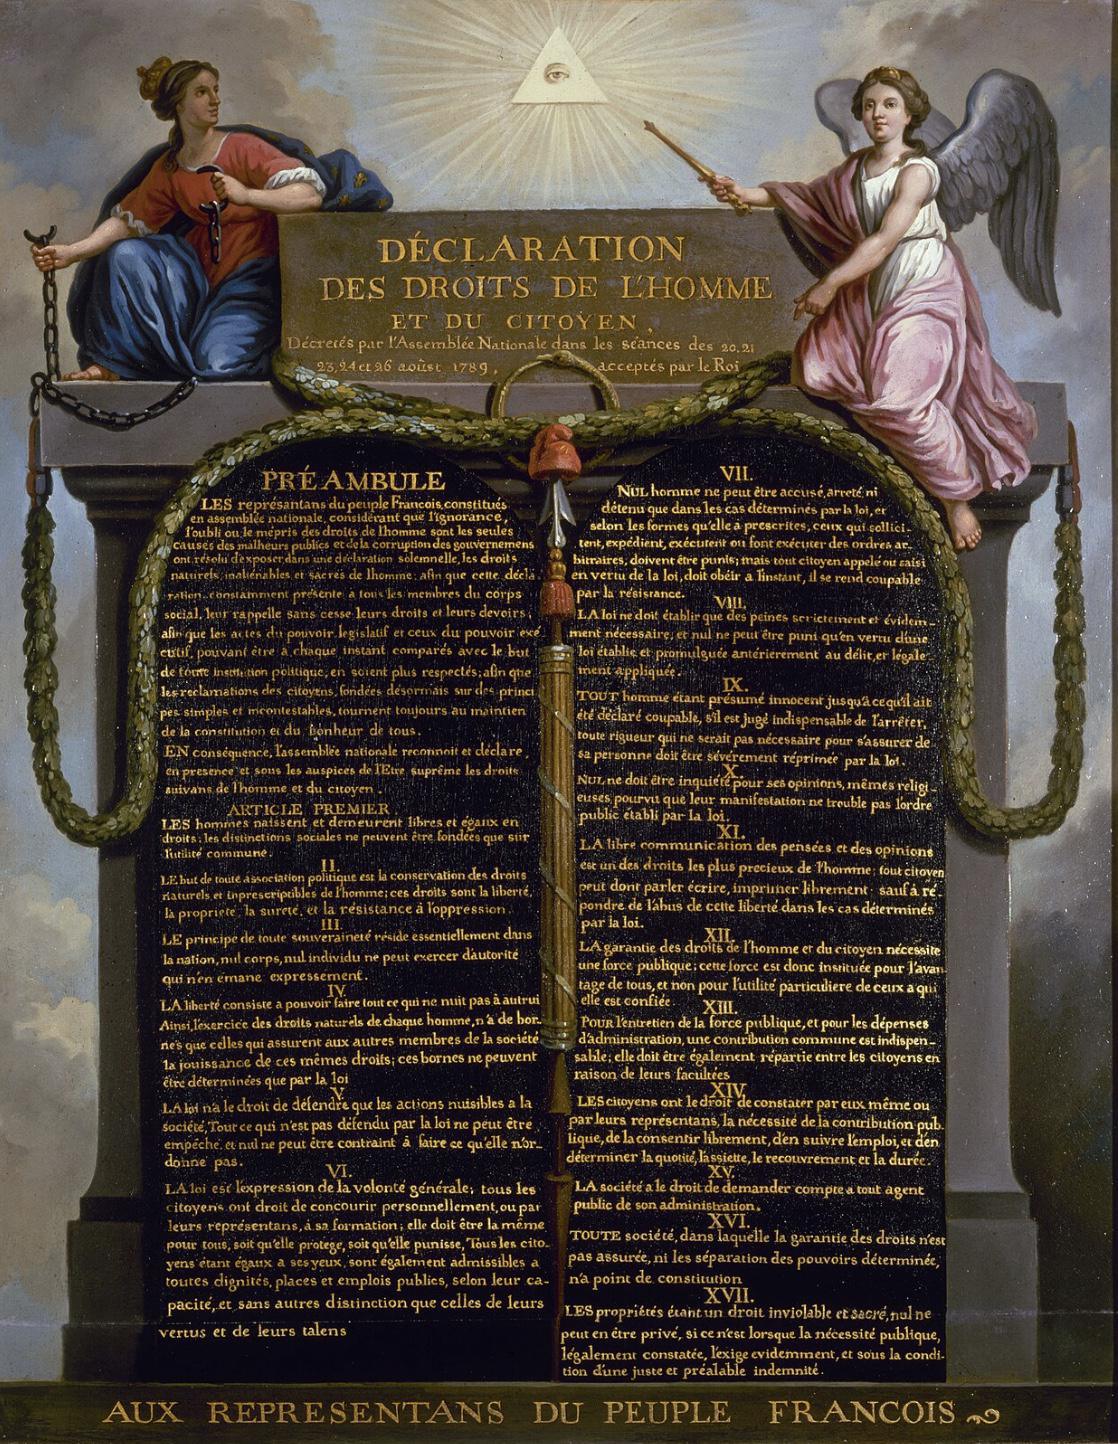 DÉCLARATION
DES DROITS DE L'HOMME
ET DU CITOYEN,
Décretés par l'Assemblée Nationale dans les séances des 20, 21
23, 24 et 26 aoûst 1789, acceptés par le Roi
PRÉAMBULE
LES représentans du peuple François, constitués
en assemblée nationale, considérant que l'ignorance,
l'oubli ou le mépris des droits de l'homme sont les seules
causes des malheurs publics et de la corruption des gouvernemens
ont résolu d'exposer, dans une déclaration solemnelle, les droits
naturels, inaliénables et sacrés de l'homme; afin que cette décla
ration, constamment présente a tous les membres du corps
social, leur rappelle sans cesse leurs droits et leurs devoirs;
afin que les actes du pouvoir législatif et ceux du pouvoir exé
cutif, pouvant être à chaque instant comparés avec le but
de toute institution politique, en soient plus respectés; afin que
les reclamations des citoyens, fondées désormais sur des princi
pes simples et incontestables, tournent toujours au maintien
de la constitution et du bonheur de tous.
EN conséquence, l'assemblée nationale reconnoit et déclare,
en presence et sous les auspices de l'Etre suprême les droits
suivans de l'homme et du citoyen.
ARTICLE PREMIER
LES hommes naissent et demeurent libres et égaux en
droits; les distinctions sociales ne peuvent être fondées que sur
l'utilité commune.
II.
LE but de toute association politique est la conservation des droits
naturels et inprescriptibles de l'homme; ces droits sont la liberté,
la propriété, la sureté, et la résistance à l'oppression.
III.
LE principe de toute souveraineté réside essentiellement dans
la nation, nul corps, nul individu ne peut exercer d'autorité
qui n'en émane expressement.
IV.
LA liberté consiste a pouvoir faire tout ce qui ne nuit pas à autrui
Ainsi, l'exercice des droits naturels de chaque homme, n'a de bor-
nes que celles qui assurent aux autres membres de la société
la jouissance de ces mêmes droits; ces bornes ne peuvent
être déterminées que par la loi
V.
LA loi n'a le droit de défendre que les actions nuisibles a la
société, Tout ce qui n'est pas défendu par la loi ne peut être
empêché, et nul ne peut être contraint à faire ce qu'elle n'or-
donne pas.
VI.
LA loi est l'expression de la volonté générale; tous les
citoyens ont droit de concourir personnellement, ou par
leurs représentans, à sa formation; elle doit être la même
pour tous, soit qu'elle protege, soit qu'elle punisse, Tous les cito-
yens étant égaux à ses yeux, sont également admissibles à
toutes dignités, places et emplois publics, selon leur ca-
pacité, et sans autres distinction que celles de leurs
vertus et de leurs talens
VII.
NUL homme ne peut être accusé, arreté ni
détenu que dans les cas déterminés par la loi, et
selon les formes qu'elle à prescrites, ceux qui sollici-
tent, expédient, exécutent ou font exécuter des ordres ar-
bitraires, doivent être punis; mais tout citoyen appelé ou saisi
en vertu de la loi, doit obéir a l'instant, il se rend coupable
par la résistance.
VIII.
LA loi ne doit établir que des peines strictement et évidem-
ment nécessaire, et nul ne peut être puni qu'en vertu d'une
loi établie et promulguée antérierement au délit, et légale
ment appliquée.
IX.
TOUT homme étant présumé innocent jusqu'à ce qu'il ait
été déclaré coupable, s'il est jugé indispensable de l'arrêter,
toute rigueur qui ne serait pas nécessaire pour s'assurer de
sa personne doit être sévèrement réprimée par la loi.
X.
NUL ne doit être inquiété pour ses opinions, mêmes religi
euses pourvu que leur manifestation ne trouble pas l'ordre
public établi par la loi.
XI.
LA libre communication des pensées et des opinions
est un des droits les plus precieux de l'homme: tout citoyen
peut dont parler écrire, imprimer librement: sauf à ré
pondre de l'abus de cette liberté dans les cas déterminés
par la loi.
XII.
LA garantie des droits de l'homme et du citoyen nécessite
une force publique; cette force est donc instituée pour l'avan
tage de tous, et non pour l'utilité particuliere de ceux a qui
elle est confiée.
XIII.
POUR l'entretien de la force publique, et pour les dépenses
d'administration, une contribution commune est indispen-
sable; elle doit être également répartie entre les citoyens en
raison de leurs facultées
XIV.
LES citoyens ont le droit de constater par eux même ou
par leurs représentans, la nécessité de la contribution pub-
lique, de la consentir librement, d'en suivre l'emploi, et d'en
déterminer la quotité, l'assiette, le recouvrement et la durée.
XV.
LA société a le droit de demander compte a tout agent
public de son administration.
XVI.
TOUTE société, dans laquelle la garantie des droits n'est
pas assurée, ni les séparation des pouvoirs déterminée,
n'a point de constitution
XVII.
LES propriétés étant un droit inviolable et sacré, nul ne
peut en être privé, si ce n'est lorsque la nécessité publique,
légalement constatée, l'exige evidemment, et sous la condi-
tion d'une juste et préalable indemnité.
AUX REPRESENTANS DU PEUPLE FRANCOIS